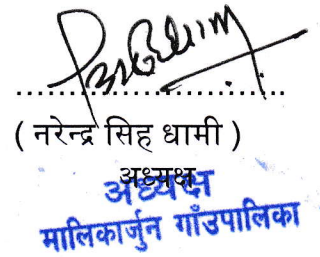 ( नरेन्द्र सिंह धामी )
अध्यक्ष
अध्यक्ष
मालिकार्जुन गाँउपालिका